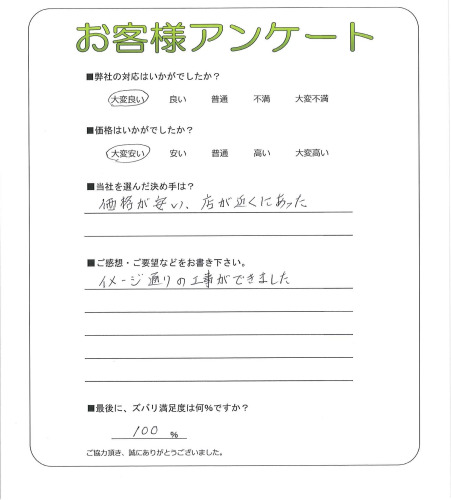 お客様アンケート
■弊社の対応はいかがでしたか？
大変良い 良い 普通 不満 大変不満
■価格はいかがでしたか？
大変安い 安い 普通 高い 大変高い
■当社を選んだ決め手は？
価格が安い、店が近くにあった
■ご感想・ご要望などをお書き下さい。
イメージ通りの工事ができました
■最後に、ズバリ満足度は何%ですか？
100 %
ご協力頂き、誠にありがとうございました。